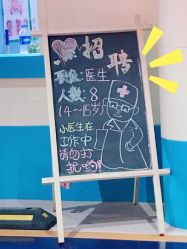 招聘
职位:医生
人数:8
(4~15岁)
小医生在
工作中
请勿打
扰哟!